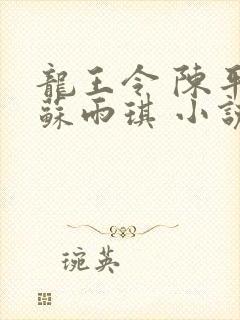 龍王令 陳平
蘇雨琪 小說
琬英